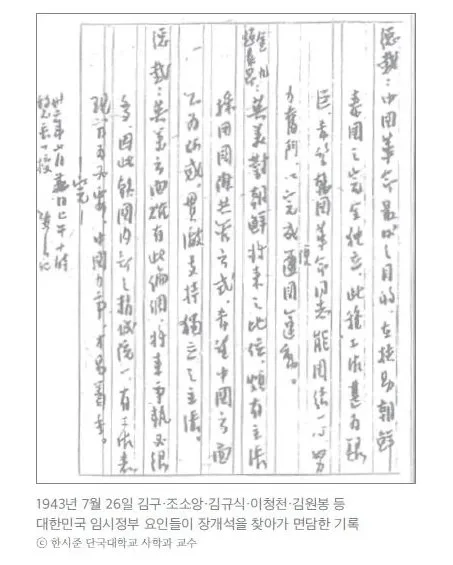 總裁：中國革命最後之目的，在扶助朝鮮
泰國之完全獨立，此種工作甚為艱
巨，希望韓國革命同志能團結一心努
力奮鬥，以完成復國運動。
金九
趙素昂：英美對朝鮮將來之地位，頗有主張
採用國際共管方式，希望中國方面
不為所惑，貫徹支持獨立之主張。
總裁：英美方面確有此論調，將來爭執必很
多，因此韓國內部之精誠統一，有工作表
現，中國力爭，才易著手。
完
卅二年七月 日上午十時
1943년 7월 26일 김구·조소앙·김규식·이청천·김원봉 등
대한민국 임시정부 요인들이 장개석을 찾아가 면담한 기록
ⓒ 한시준 단국대학교 사학과 교수